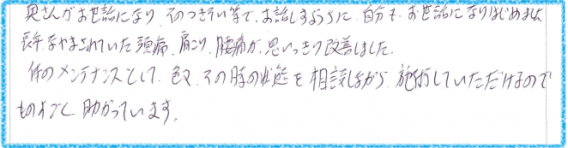 奥さんがお世話になり、そのつきそい等で、お話しするうちに、自分も、お世話になりはじめました
長年なやまされていた頭痛、肩こり、腰痛が、思いっきり改善しました。
体のメンテナンスとして、色々、その時の状態を相談しながら、施術していただけるので
ものすごく助かっています。